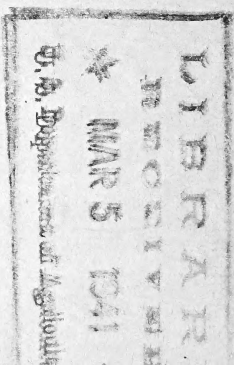 LIBRAR
RECEIVE
★ MAR 5 1941
U.S. Department of Agricultu